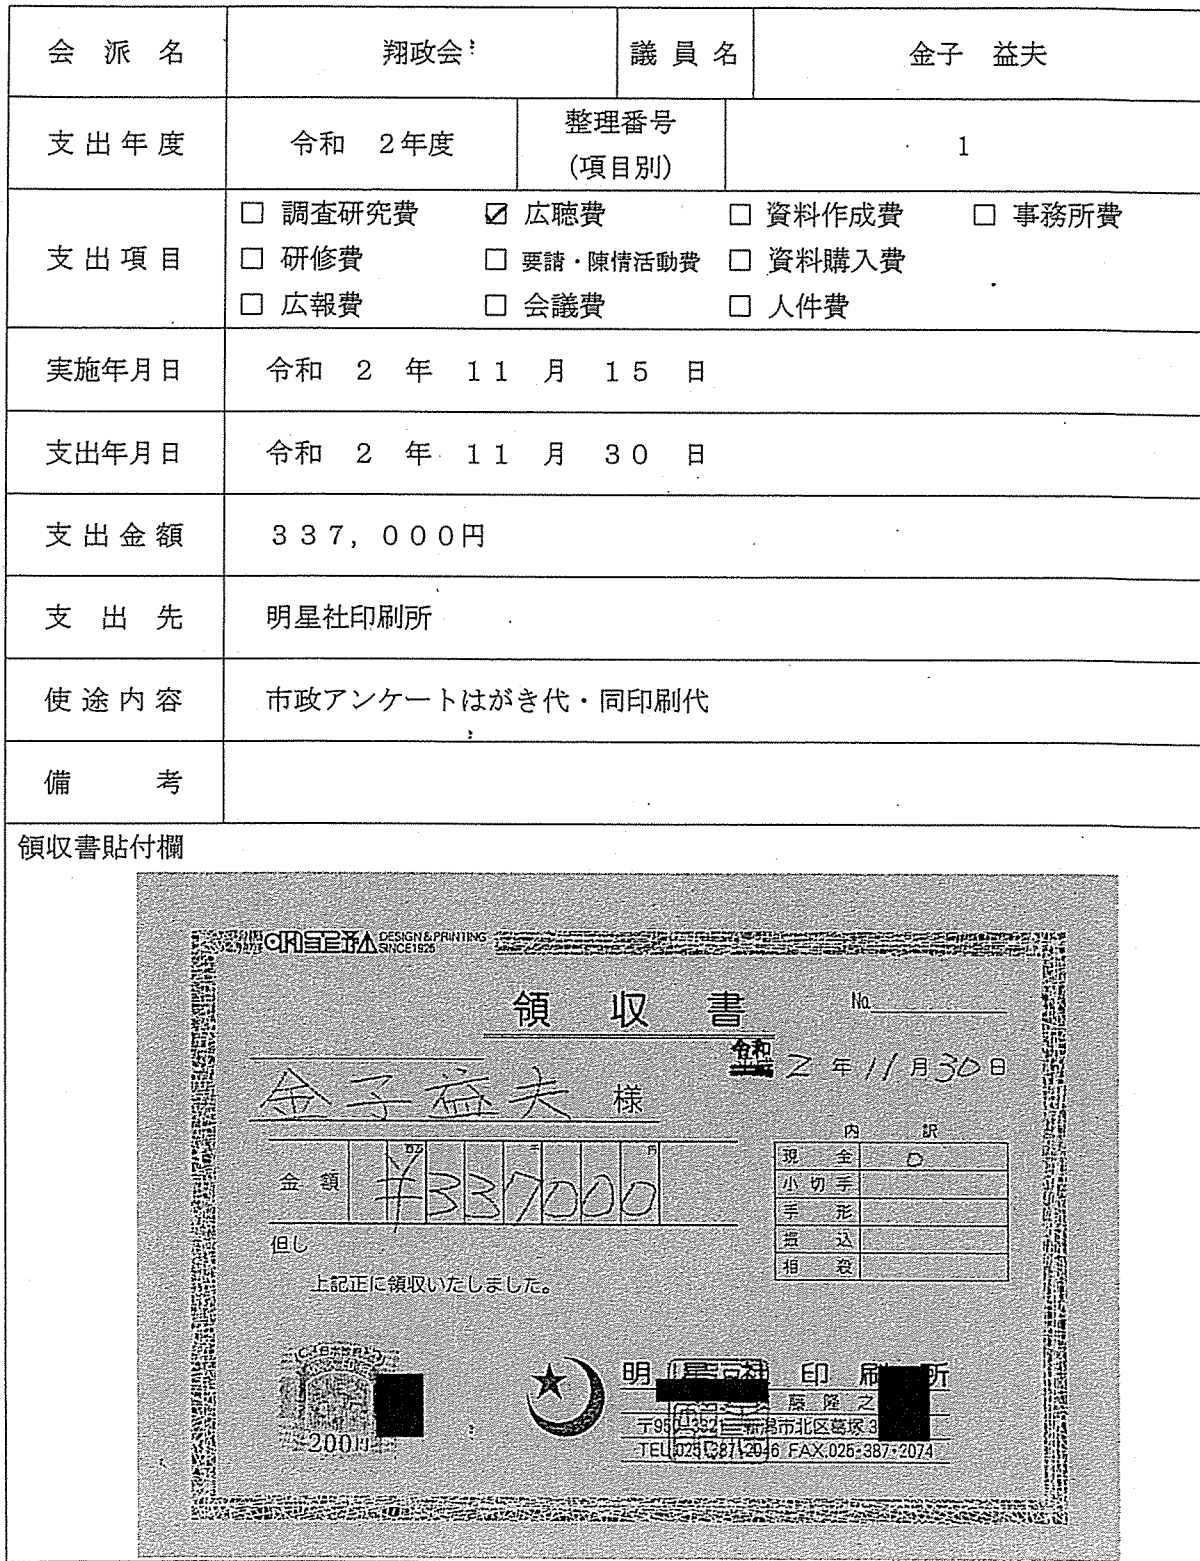 会派名 翔政会 議員名 金子 益夫
支出年度 令和 2年度 整理番号 (項目別) 1
支出項目
☐ 調査研究費 ☑ 広聴費 ☐ 資料作成費 ☐ 事務所費
☐ 研修費 ☐ 要請・陳情活動費 ☐ 資料購入費
☐ 広報費 ☐ 会議費 ☐ 人件費
実施年月日 令和 2 年 11 月 15 日
支出年月日 令和 2 年 11 月 30 日
支出金額 337,000円
支出先 明星社印刷所
使途内容 市政アンケートはがき代・同印刷代
備考
領収書貼付欄
DESIGN & PRINTING
SINCE 1925
領収書 No.
令和 2 年 11 月 30 日
金子益夫 様
内訳
金額 ¥337000
現金 0
小切手
手形
振込
相殺
但し
上記正に領収いたしました。
200円
明星社印刷所
藤隆之
新潟市北区葛塚
TEL 025-387-2046 FAX.025-387-2074